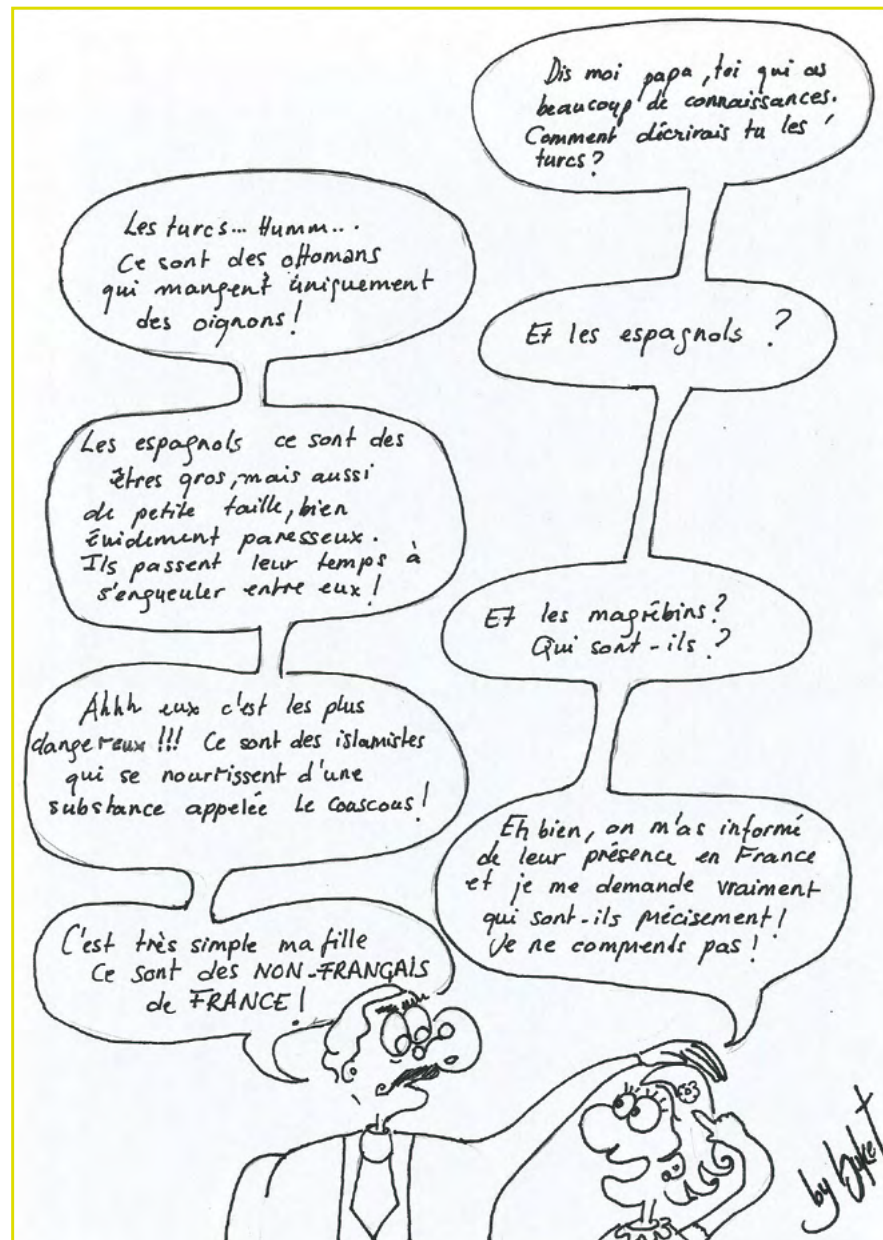 Dis moi papa, toi qui as
beaucoup de connaissances.
Comment décrirais tu les
turcs?
Les turcs... Humm...
Ce sont des ottomans
qui mangent uniquement
des oignons!
Et les espagnols ?
Les espagnols ce sont des
êtres gros, mais aussi
de petite taille, bien
évidement paresseux.
Ils passent leur temps à
s'engueuler entre eux !
Et les magrébins?
Qui sont-ils ?
Ahhh eux c'est les plus
dangereux !!! Ce sont des islamistes
qui se nourissent d'une
substance appelée Le Couscous !
Eh bien, on m'as informé
de leur présence en France
et je me demande vraiment
qui sont-ils précisement !
Je ne comprends pas !
C'est très simple ma fille
Ce sont des NON-FRANÇAIS
de FRANCE !
by